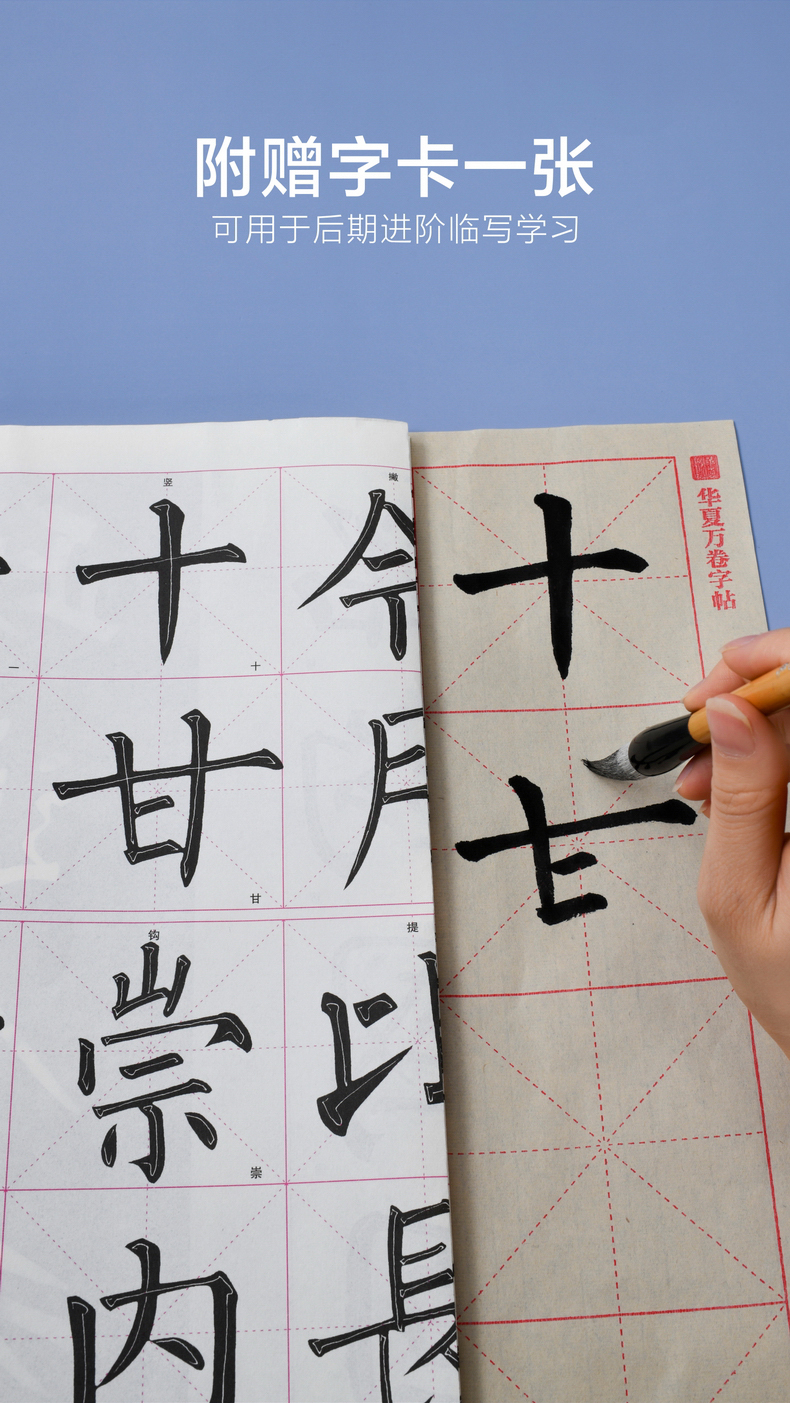 附赠字卡一张
可用于后期进阶临写学习
竖
撇
十
今
一
十
甘
月
甘
钩
提
崇
以
崇
内
長
华夏万卷字帖
十